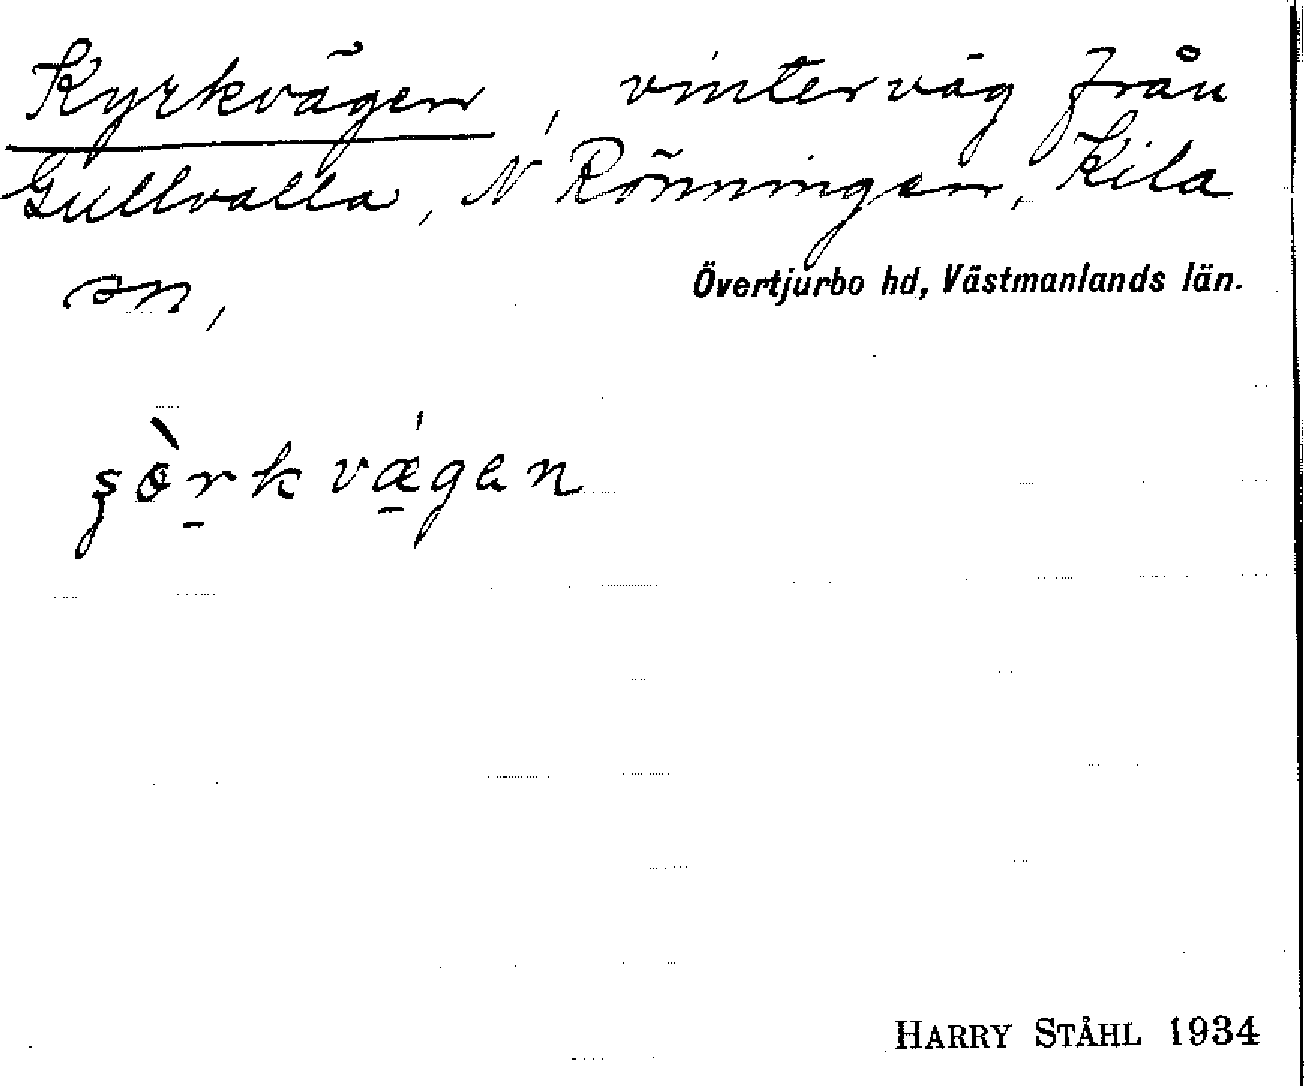 Kyrkvägen, vinterväg från
Gullvalla, N Rönningen, Kila
sn,
Övertjurbo hd, Västmanlands län.
ʂò̱rkvǽgen
HARRY STÅHL 1934